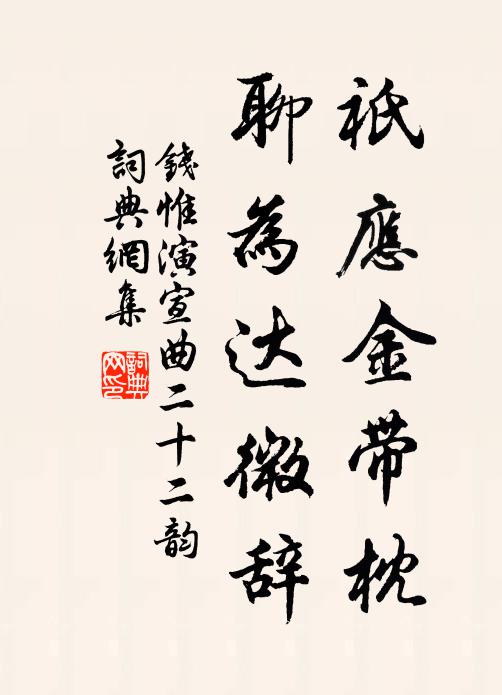 祇應金带枕
聊為达微辞
錢惟演宣曲二十二韵
詞典網集
詞典網印